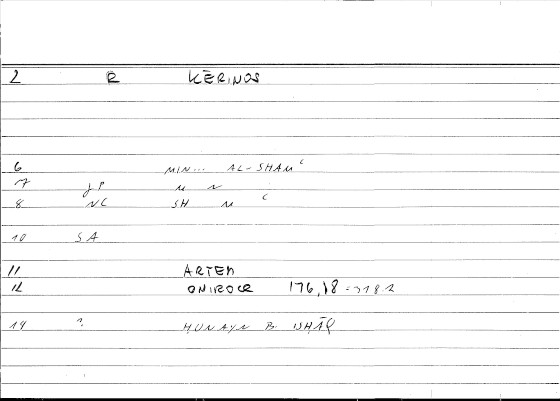 2 R KĒRINOS
6 MIN... AL-SHAMʿ
7 gP M N
8 NC SH M ʿ
10 SA
11 ARTEM
12 ONIROCR 176,18
14 ? HUNAYN B. ISHĀQ